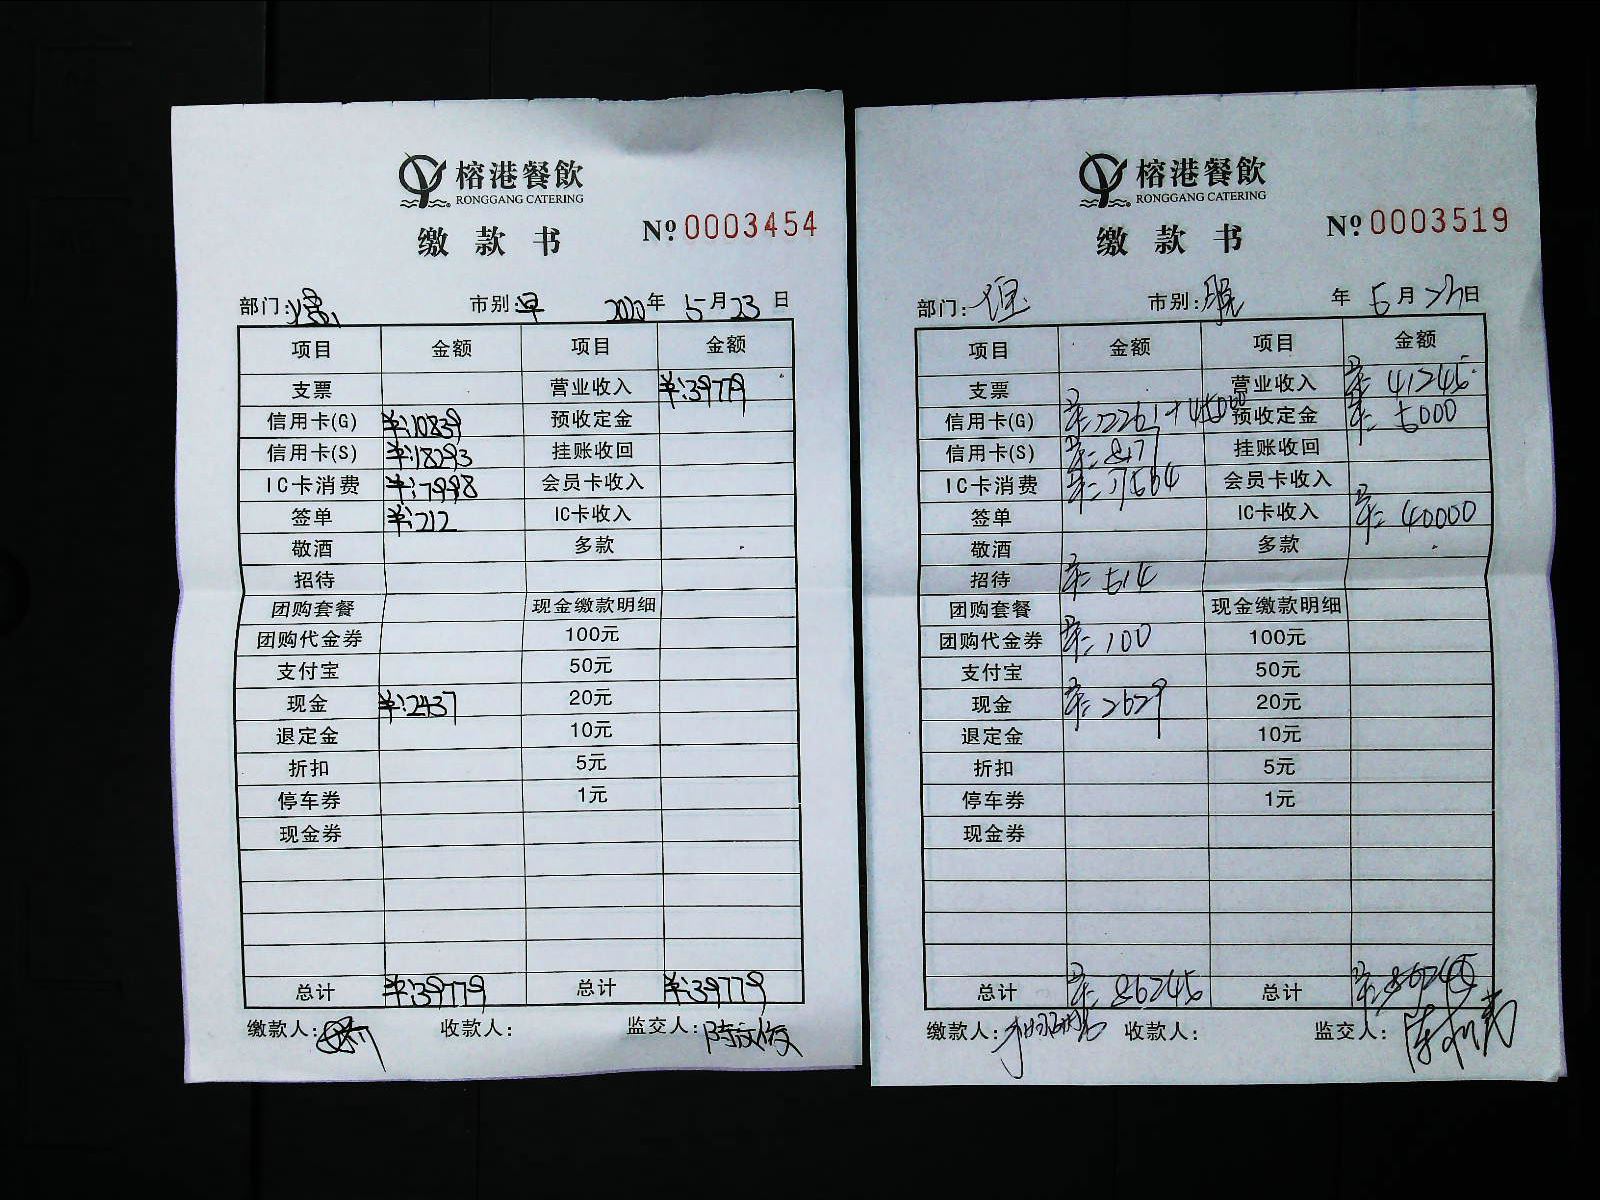 榕港餐飲
RONGGANG CATERING
缴款书
№ 0003454
部门: 市别:早 2020年 5月23日
项目 金额 项目 金额
支票 营业收入 ¥:39779
信用卡(G) ¥:10839 预收定金
信用卡(S) ¥:18293 挂账收回
IC卡消费 ¥:7998 会员卡收入
签单 ¥:212 IC卡收入
敬酒 多款
招待
团购套餐 现金缴款明细
团购代金券 100元
支付宝 50元
现金 ¥:2437 20元
退定金 10元
折扣 5元
停车券 1元
现金券
总计 ¥:39779 总计 ¥:39779
缴款人: 收款人: 监交人:
榕港餐飲
RONGGANG CATERING
缴款书
№ 0003519
部门: 市别:晚 年 5月23日
项目 金额 项目 金额
支票 营业收入 ¥: 41245
信用卡(G) ¥:22261+45000 预收定金 ¥: 5000
信用卡(S) ¥:8177 挂账收回
IC卡消费 ¥:7564 会员卡收入
签单 IC卡收入 ¥: 40000
敬酒 多款
招待 ¥: 514
团购套餐 现金缴款明细
团购代金券 ¥: 100 100元
支付宝 50元
现金 ¥: 2629 20元
退定金 10元
折扣 5元
停车券 1元
现金券
总计 ¥: 86245 总计 ¥:86245
缴款人: 收款人: 监交人: